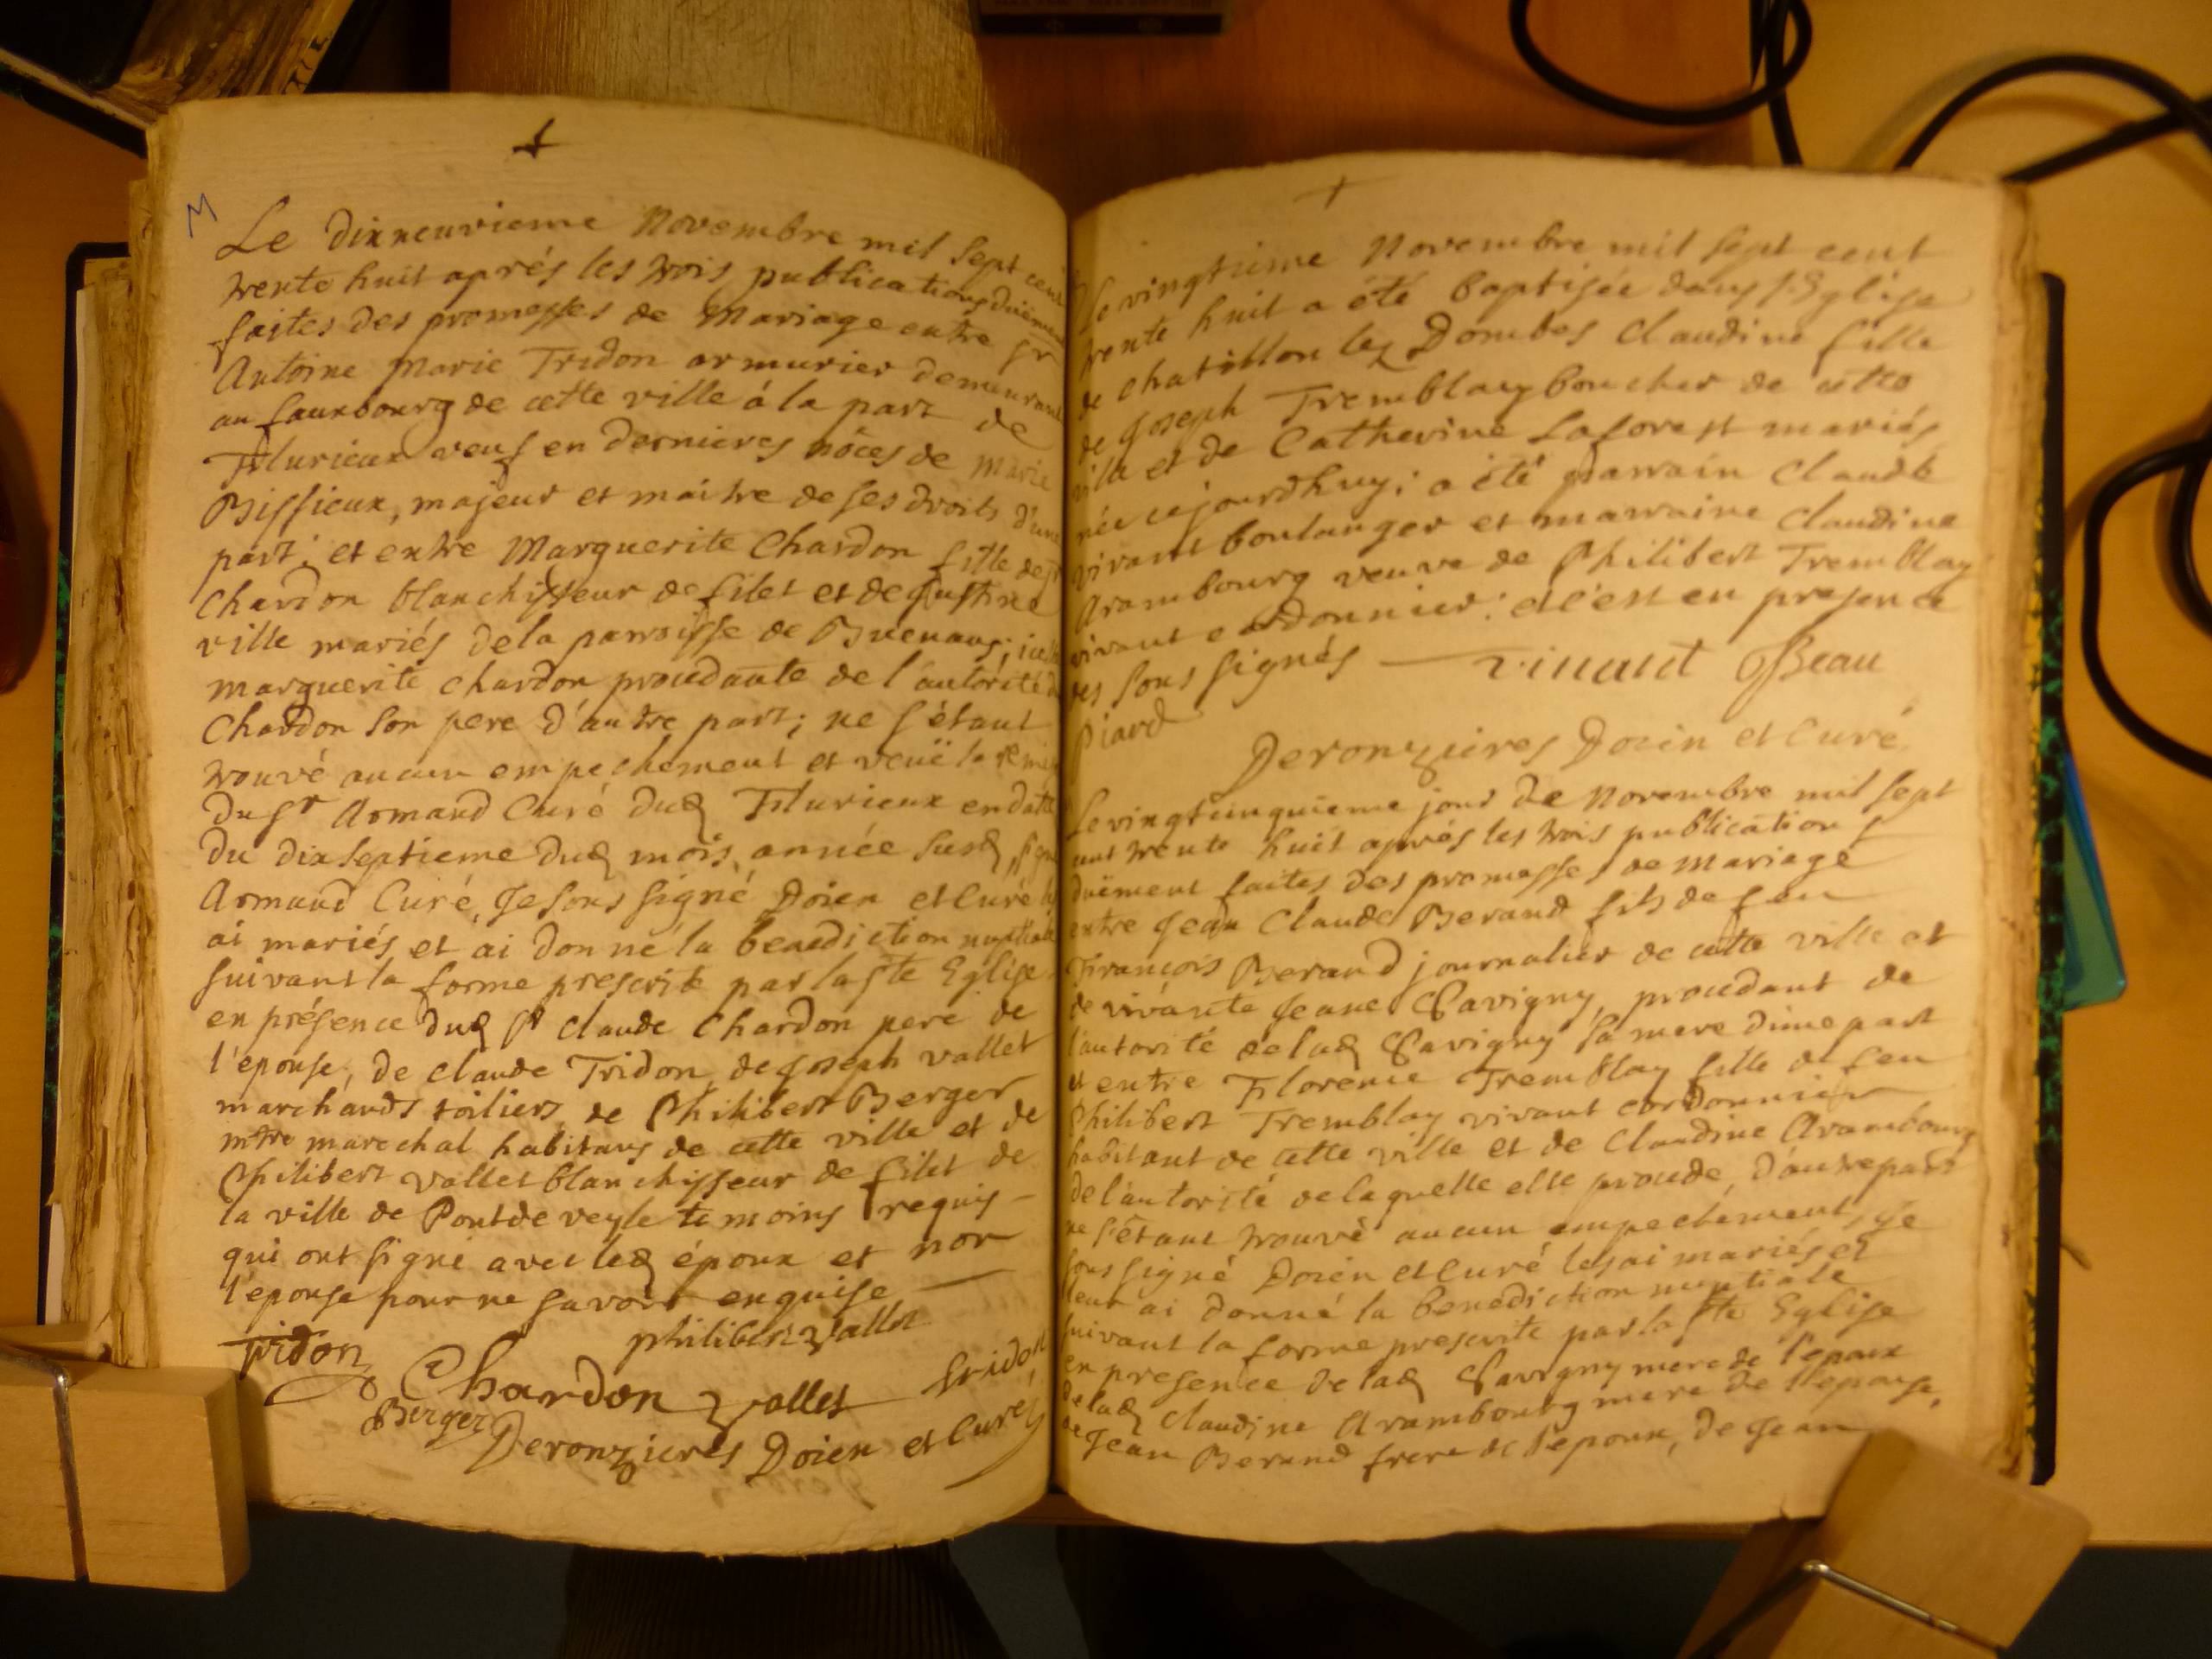 M
Le dixneuvieme Novembre mil sept cent
trente huit aprés les trois publications düement
faites des promesses de Mariage entre sr
Antoine Marie Tridon armurier demeurant
au fauxbourg de cette ville á la part de
Flurieux veuf en dernieres nôces de Marie
Bissieux, majeur et maitre de ses droits d'une
part; et entre Marguerite Chardon fille de sr
Chardon blanchisseur de filet et de Justine
ville mariés de la parroisse de Buenans; icelle
marguerite chardon procedante de l'autorité du
Chardon son pere d'autre part; ne s'etant
trouvé aucun empechement et veuë la remise
du sr Armand Curé dud Flurieux en datte
du dixseptieme dud mois, année susd, signé
Armand Curé, Je sous signé Doien et Curé les
ai mariés et ai donné la benediction nuptiale
suivant la forme prescrite par la ste Eglise
en présence dud sr claude Chardon pere de
l'epouse, de claude Tridon, de Joseph vallet
marchands toiliers, de Philibert Berger
mtre marechal habitans de cette ville et de
Philibert vallet blanchisseur de filet de
la ville de Pontdeveyle temoins requis
qui ont signé avec led époux et non
l'epouse pour ne savoir enquise
philibert vallet
Tridon Chardon vallet tridon
Berger Deronzieres Doien et Curé
Le vingtieme Novembre mil sept cent
trente huit a été baptisée dans l'Eglise
de chatillon lez Dombes Claudine fille
de Joseph Tremblay boucher de cette
ville et de Catherine Laforest mariés
née cejourdhuy; a été parrain Claude
vivant boulanger et marraine Claudine
Arambourg veuve de Philibert Tremblay
vivant cordonnier: et c'est en presence
des sous signés vivant Beau
Piard
Deronzieres Doien et Curé
Le vingtcinquieme jour de Novembre mil sept
cent trente huit aprés les trois publications
duëment faites des promesses de mariage
entre Jean Claude Berand fils de feu
François Berand journalier de cette ville et
de vivante Jeane Savigny, procedant de
l'autorité de lad Savigny sa mere d'une part
et entre Florence Tremblay fille de feu
Philibert Tremblay vivant cordonnier
habitant de cette ville et de Claudine Arambourg
de l'autorité de laquelle elle procede, d'autre part
ne s'etant trouvé aucun empechement, Je
sous signé Doien et Curé les ai mariés et
leur ai donné la benediction nuptiale
suivant la forme prescrite par la ste Eglise
en presence de lad Savigny mere de l'epoux
de lad Claudine Arambourg mere de l'epouse,
de Jean Berand frere de l'epoux, de Jean